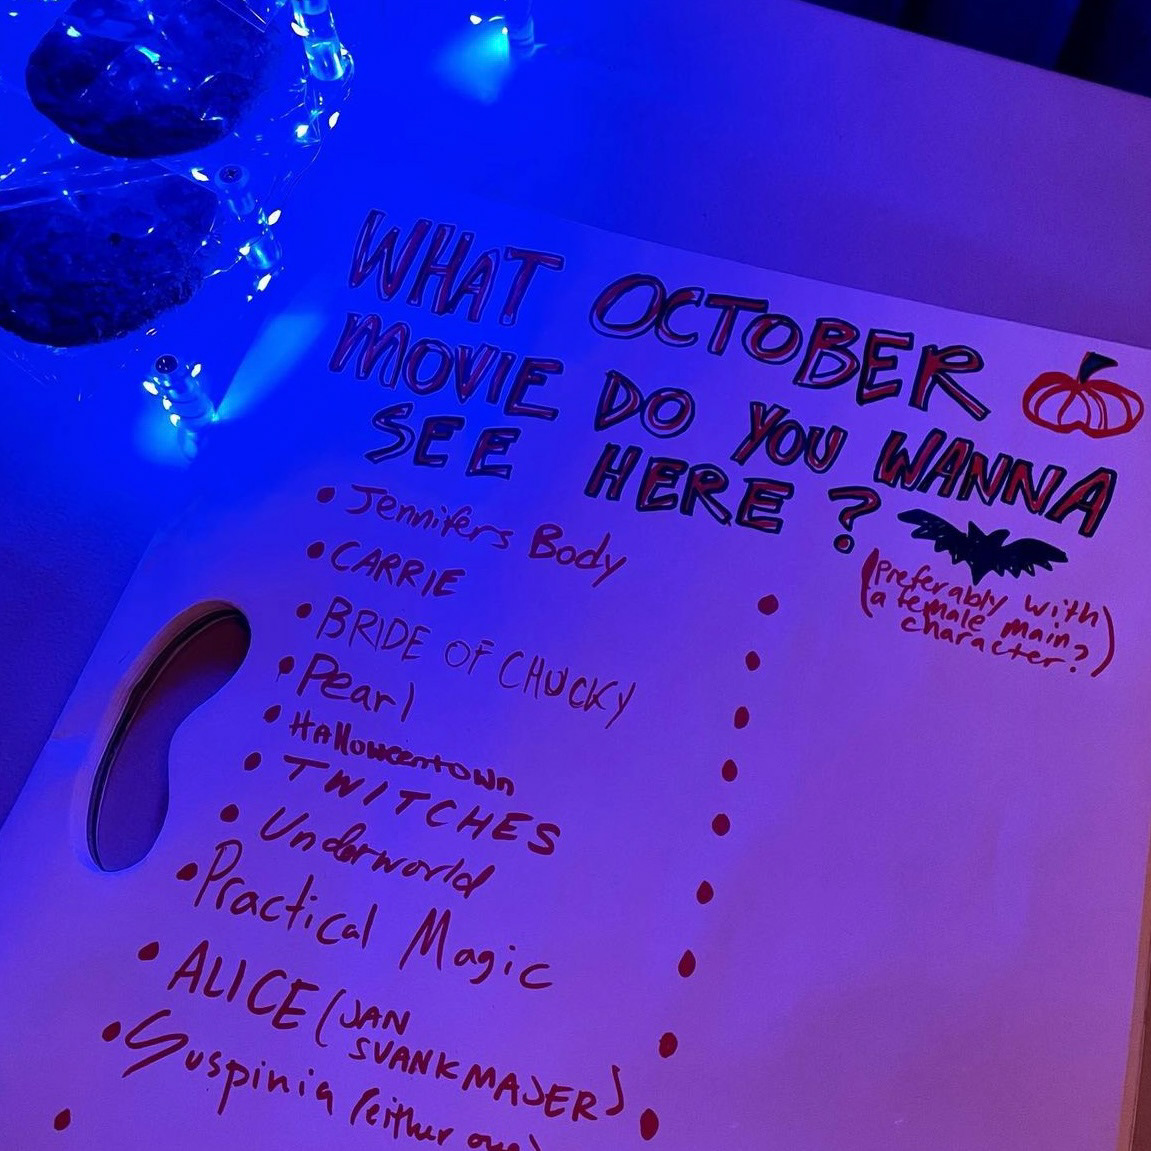 WHAT OCTOBER
MOVIE DO YOU WANNA
SEE HERE?
(Preferably with
a female main
character?)
• Jennifers Body
• CARRIE
• BRIDE OF CHUCKY
• Pearl
• HAlloweentown
• TWITCHES
• Underworld
• Practical Magic
• ALICE (JAN
SVANKMAJER)
• Suspinia (either one)